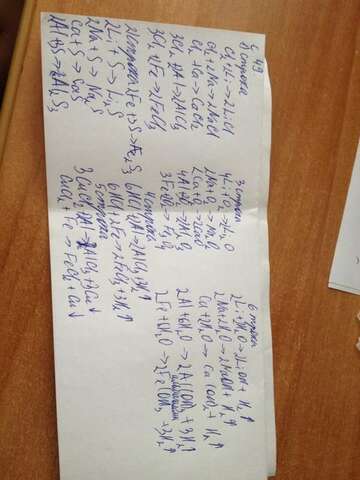 § 49
2 строка
Cl₂+2Li→2LiCl
Cl₂+2Na→2NaCl
Cl₂+Ca→CaCl₂
3Cl₂+2Al→2AlCl₃
3Cl₂+2Fe→2FeCl₃
2 строка 2Fe+3S→Fe₂S₃
2Li+S→Li₂S
2Na+S→Na₂S
Ca+S→CaS
2Al+3S→Al₂S₃
3 строка
4Li+O₂→2Li₂O
2Na+O₂→Na₂O
2Ca+O₂→2CaO
4Al+3O₂→2Al₂O₃
4 строка
6HCl+2Al→2AlCl₃+3H₂↑
6HCl+2Fe→2FeCl₃+3H₂↑
5 строка
3CuCl₂+2Al→2AlCl₃+3Cu↓
CuCl₂+Fe→FeCl₂+Cu↓
6 строка
2Li+2H₂O→2LiOH+H₂↑
2Na+2H₂O→2NaOH+H₂↑
Ca+2H₂O→Ca(OH)₂+H₂↑
2Al+6H₂O→2Al(OH)₃+3H₂↑
2Fe+6H₂O→2Fe(OH)₃+3H₂↑